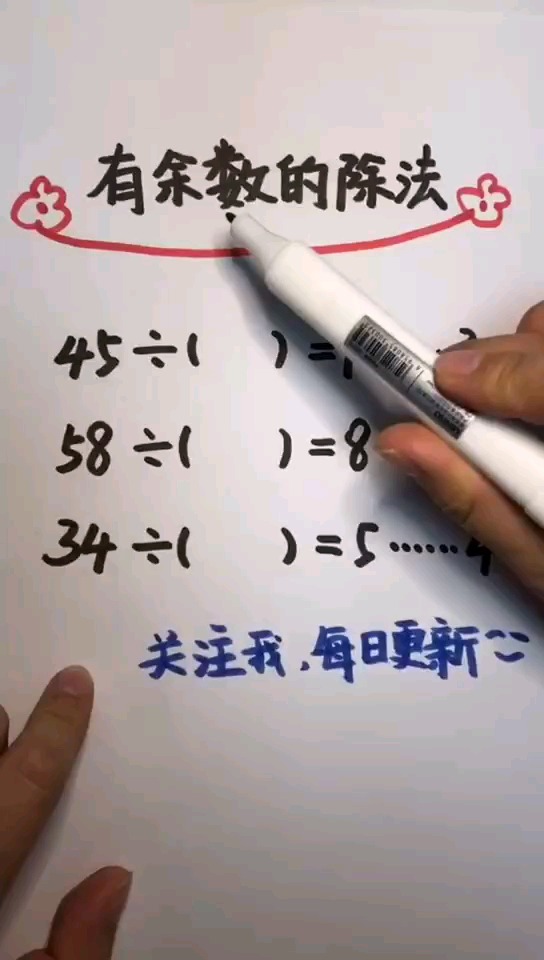 有余数的除法
45÷(    )=
58÷(    )=8
34÷(    )=5……4
关注我,每日更新~